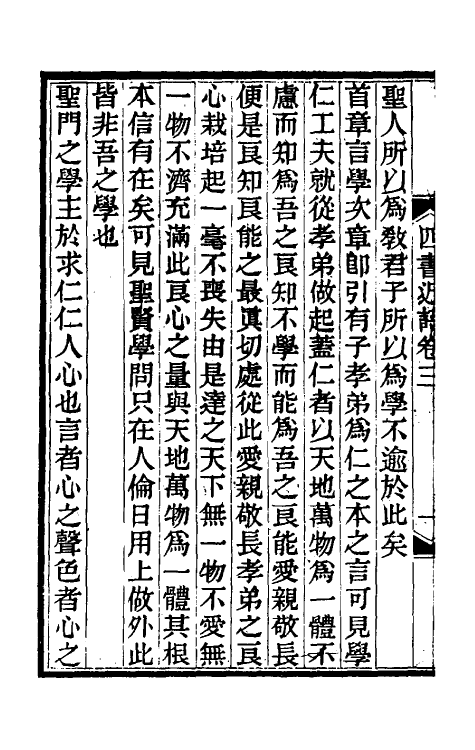 四書近語卷三
一
聖人所以爲教君子所以爲學不逾於此矣
首章言學次章卽引有子孝弟爲仁之本之言可見學
仁工夫就從孝弟做起蓋仁者以天地萬物爲一體不
慮而知爲吾之良知不學而能爲吾之良能愛親敬長
便是良知良能之最眞切處從此愛親敬長孝弟之良
心栽培起一毫不喪失由是達之天下無一物不愛無
一物不濟充滿此良心之量與天地萬物爲一體其根
本信有在矣可見聖賢學問只在人倫日用上做外此
皆非吾之學也
聖門之學主於求仁仁人心也言者心之聲色者心之